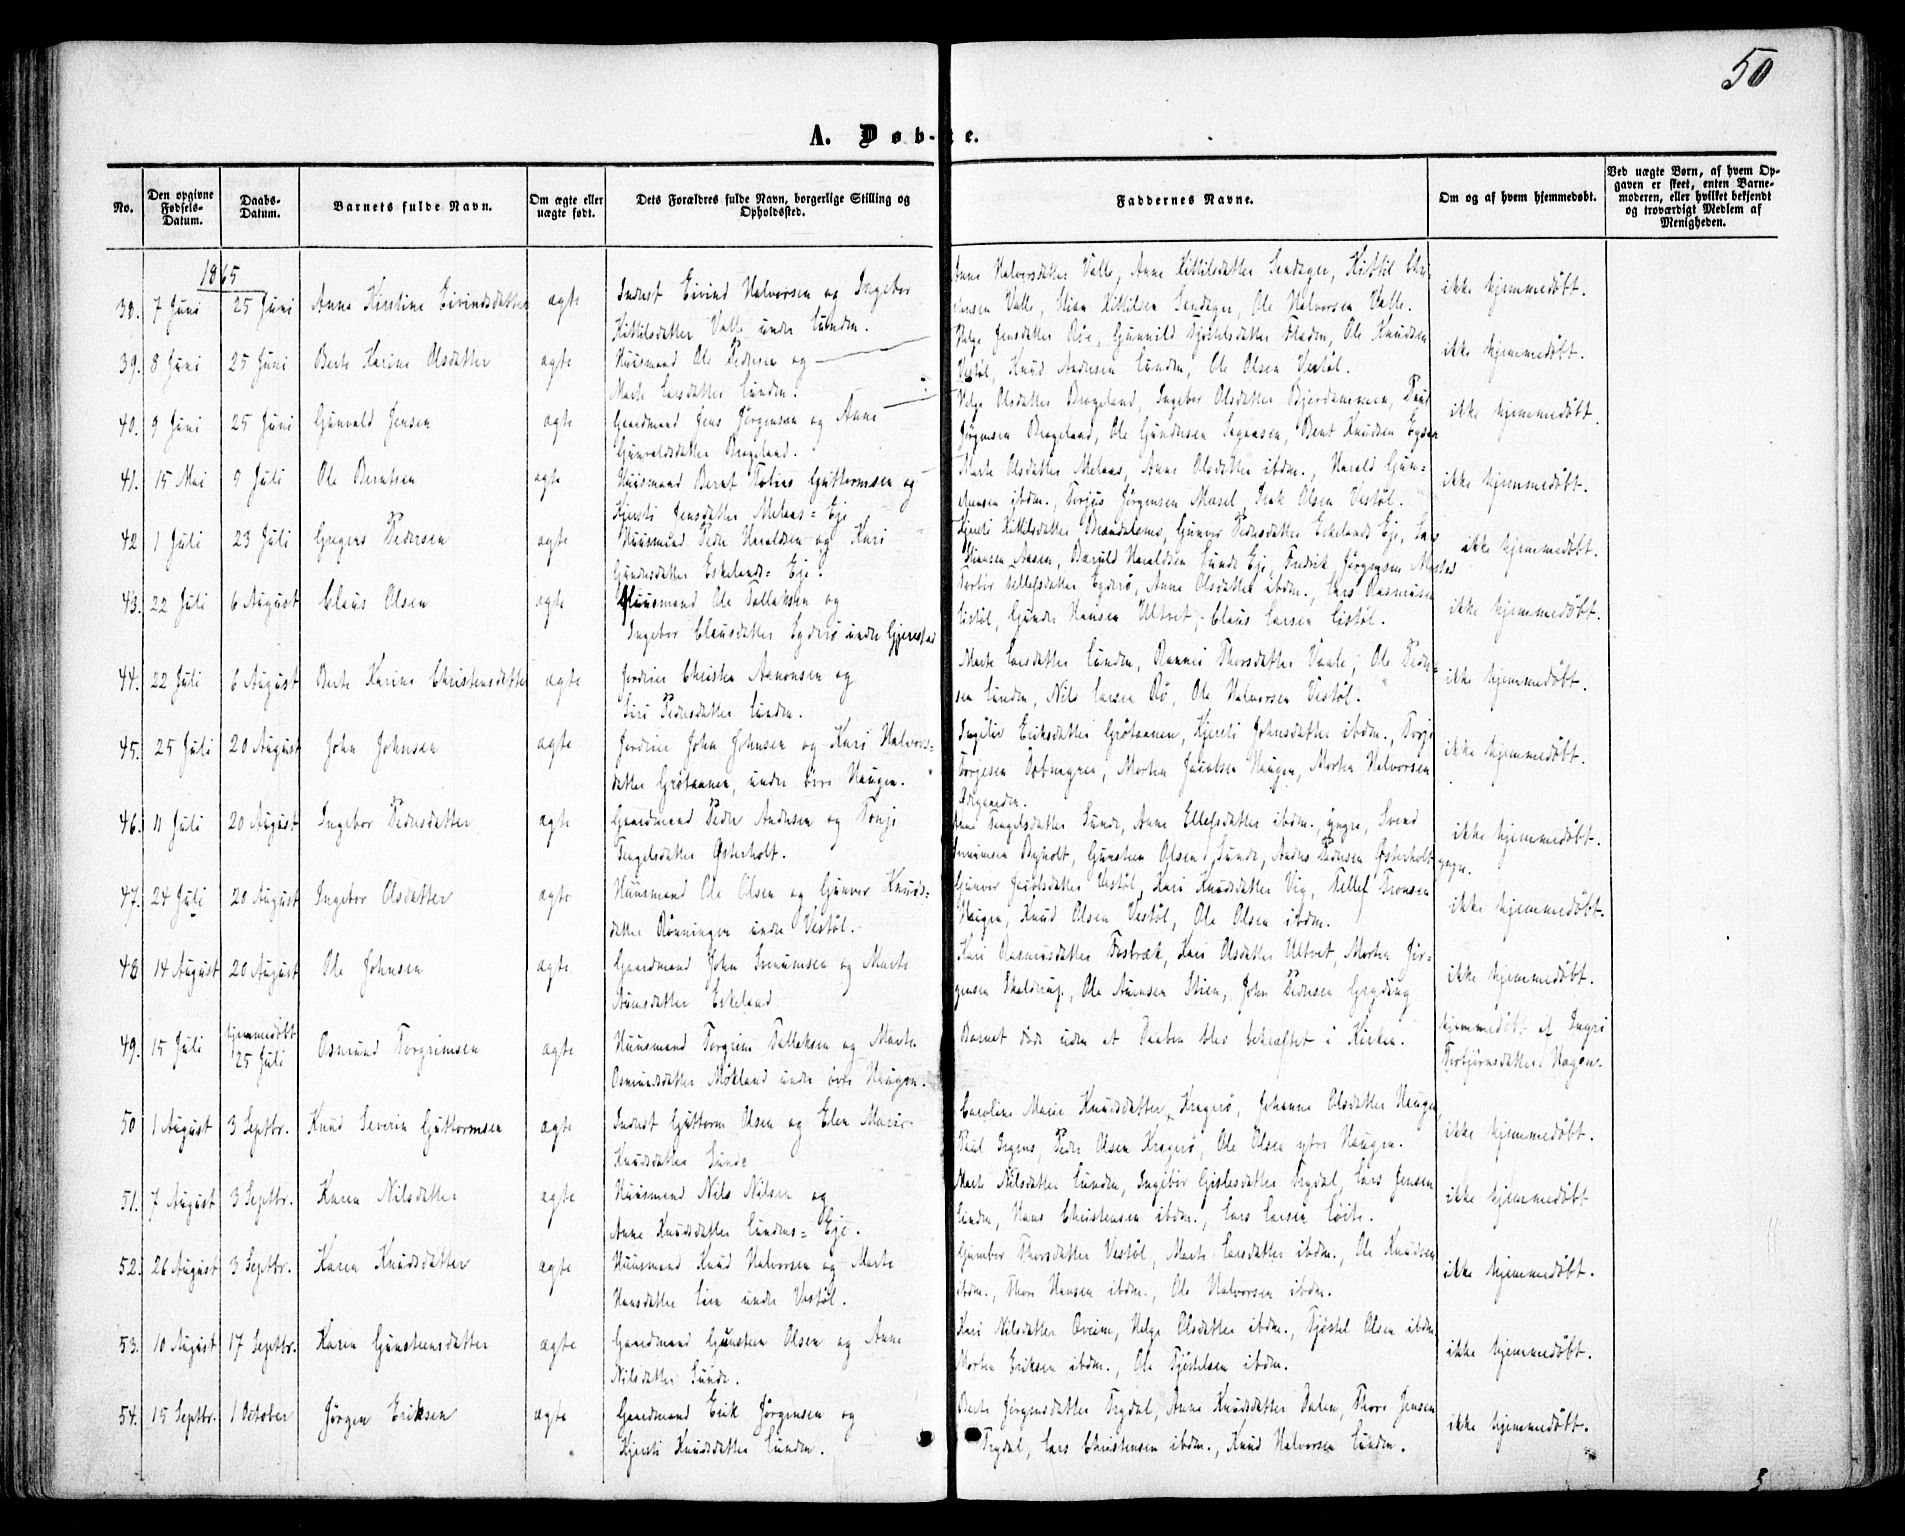 50
A. Døb-te.
No.
Den opgivne Fødsels-Datum.
Daabs-Datum.
Barnets fulde Navn.
Om ægte eller uægte født.
Dets Forældres fulde Navn, borgerlige Stilling og Opholdssted.
Faddernes Navne.
Om og af hvem hjemmedøbt.
Ved uægte Børn, af hvem Opgaven er skeet, enten Barnemoderen, eller hvilket bekjendt og troværdigt Medlem af Menigheden.
1865
38. 7 Juni 25 Juni Anne Kirstine Eivindsdatter ægte Inderst Eivind Halvorsen og Ingebor
Kittilsdatter Valle under Lunden.
Anne Halvorsdatter Valle, Anne Kittilsdatter Sendager, Kittil
Valle, Kittilsen Sendager, Ole Halvorsen Valle.
ikke hjemmedøbt.
39. 8 Juni 25 Juni Berte Karine Olsdatter ægte Huusmand Ole Pedersen og
Marte Larsdatter Lunden.
Helge Jensdatter Røe, Gunnild Fladen, Ole Knudsen
Vestøl, Knud Andersen Lunden, Ole Olsen Vestøl.
ikke hjemmedøbt.
40. 9 Juni 25 Juni Gunvald Jensen ægte Gaardmand Jens Jørgensen og Anne
Gunvaldsdatter Brageland.
Helge Olsdatter Brageland, Ingebor Olsdatter
Jørgensen Brageland, Ole Gundersen Bent Knudsen
ikke hjemmedøbt.
41. 15 Mai 9 Juli Ole Berntsen ægte Huusmand Bernt Tobias Guttormsen og
Kjersti Jensdatter Melaas= Eje
Marte Olsdatter Melaas, Anne Olsdatter ibdm., Harald Gun=
dersen ibdm., Torjus Jørgensen Olsen Vestøl.
ikke hjemmedøbt.
42 1 Juli 23 Juli Gregers Pedersen ægte Huusmand Peder Haraldsen og Kari
Gundersdatter Eskelands= Eje.
Kjersti Kittilsdatter Gunvor Pedersdatter Eskelands Eje, Lars
Aasen, Haraldsen Sunde Eje, Fredrik Jørgensen
ikke hjemmedøbt.
43. 22 Juli 6 August Claus Olsen ægte Huusmand Ole Tallaksen og
Ingebor Clausdatter Egderø under Gjerestad
Tellefsdatter Egderø, Anne Olsdatter ibdm., Lars Rasmusen
Gunder Hansen Ultvet, Claus Larsen
ikke hjemmedøbt.
44. 22 Juli 6 August Berte Karine Christensdatter ægte Jordeier Christen Aanonsen og
Siri Pedersdatter Lunden.
Marte Larsdatter Lunden, Thorsdatter Vaale, Ole Peder=
sen Lunden, Nils Larsen Rø, Ole Halvorsen Vestøl.
ikke hjemmedøbt.
45. 25 Juli 20 August John Johnsen ægte Jordeier John Johnsen og Kari Halvors=
datter Grøtaanen, under øvre Haugen.
Ingeliv Eriksdatter Grøtaanen, Kjersti Johnsdatter ibdm., Torje
Torgesen Morten Jacobsen Haugen, Morten Halvorsen
ikke hjemmedøbt.
46. 11 Juli 20 August Ingebor Pedersdatter ægte Gaardmand Peder Andersen og Tonje
Tengelsdatter Østerholt.
Tengelsdatter Sunde, Anne Ellefsdatter ibdm. yngre, Svend
Byholt, Gunsten Olsen Sunde, Anders Pedersen Østerholt yngr.
ikke hjemmedøbt.
47. 24 Juli 20 August Ingebor Olsdatter ægte Huusmand Ole Olsen og Gunvor Knuds=
datter Rønningen under Vestøl.
Gunvor Jacobsdatter Vestøl, Kari Knudsdatter Vig, Tellef Tronsen
Haugen, Knud Olsen Vestøl, Ole Olsen ibdm.
ikke hjemmedøbt.
48 14 August 20 August Ole Johnsen ægte Gaardmand John og Marte
Eskeland
Kari Rasmusdatter Fosbræk, Kari Olsdatter Ultvet, Morten Jør=
gensen Ole Stien, John Pedersen Gryting
ikke hjemmedøbt.
49. 15 Juli hjemmedøbt 25 Juli Osmund Torgrimsen ægte Huusmand Torgrim Tallaksen og Marte
Osmundsdatter Mokland under øvre Haugen.
Barnet døde uden at Daaben blev bekræftet i Kirken.
hjemmedøbt af Ingri
Torbjørnsdatter Hagen.
50 1 August 3 Septbr. Knud Severin Guttormsen ægte Inderst Guttorm Olsen og Elen Marie
Knudsdatter Sunde
Caroline Marie Knudsdatter Kragerø, Johanne Olsdatter Haugen
Paul Peder Olsen Kragerø, Ole Olsen ytre Haugen.
ikke hjemmedøbt.
51. 7 August 3 Septbr. Karen Nilsdatter ægte Huusmand Nils Nilsen og
Anne Knudsdatter Lundens= Eje.
Marte Nilsdatter Lunden, Ingebor Gislesdatter Trydal, Lars Jensen
Lunden, Hans Christensen ibdm., Lars Larsen Løite.
ikke hjemmedøbt
52. 26 August 3 Septbr. Karen Knudsdatter ægte Huusmand Knud Halvorsen og Marte
Hansdatter Lien under Vestøl.
Gumbor Thorsdatter Vestøl, Marte Larsdatter ibdm., Ole Knudsen
ibdm., Thor Hansen ibdm., Ole Halvorsen ibdm.
ikke hjemmedøbt.
53. 10 August 17 Septbr. Karen Gunsteensdatter ægte Gaardmand Gunsteen Olsen og Anne
Nilsdatter Sunde.
Kari Nilsdatter Qveim, Helge Olsdatter ibdm., Tjøstel Olsen ibdm.
Morten Eriksen ibdm., Ole Tjøstelsen ibdm.
ikke hjemmedøbt.
54. 15 Septbr. 1 October Jørgen Eriksen ægte Gaardmand Erik Jørgensen og
Kjersti Knudsdatter Lunden.
Berte Jørgensdatter Trydal, Anne Knudsdatter Dalen, Thore Jensen
Trydal, Lars Christensen ibdm., Knud Halvorsen Lunden.
ikke hjemmedøbt.